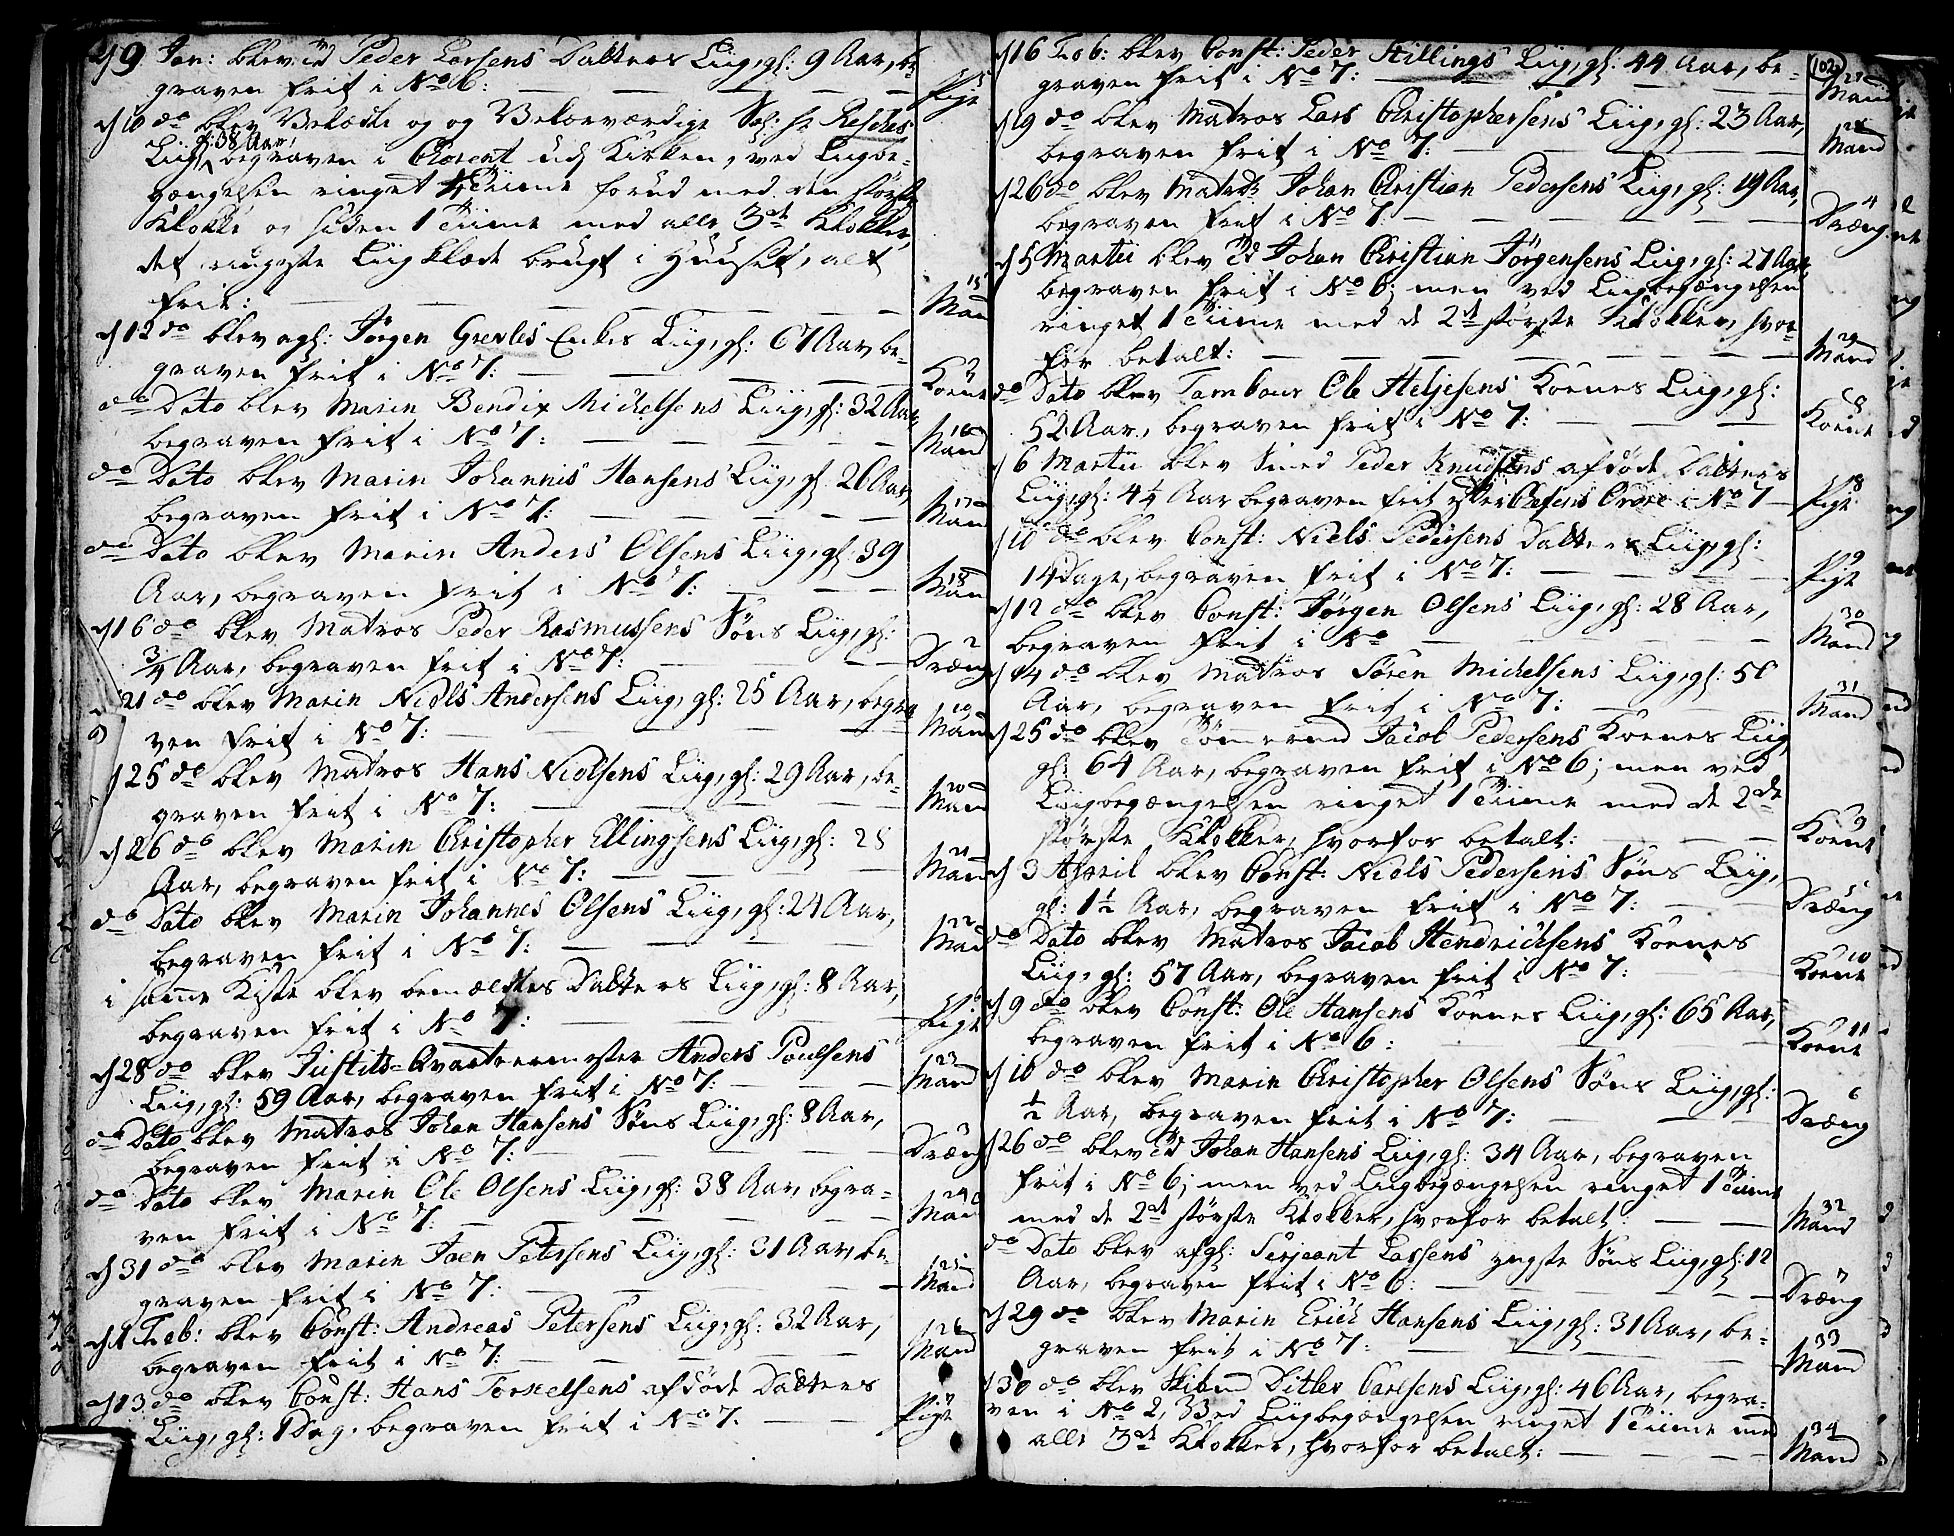 d 9 Jan: blev Peder Larsens Datters Liig, gl: 9 Aar, be-
graven frit i No 6: Pige
d 10 do blev Velædle og og Velærværdige Sal: Hr Resches
gl: 38 Aar,
Liig begraven i Chorent ud Kirken, ved Liigbe-
gængelsen ringet Tiime forud med den største
Klokke og siden 1 Tiime med alle 3de Klokker,
det ringeste Liigklæde brugt i Huuset, alt
frit: 15 Man
d 12 do blev afgl: Jörgen Grevles Enkes Liig, gl: 67 Aar be-
graven frit i No 7: Koene
do Dato blev Marin Bendix Michelsens Liig, gl: 32 Aar,
begraven frit i No 7: 16 Mand
do Dato blev Marin Johannis Hansens Liig, gl: 26 Aar,
begraven frit i No 7: 17 Man
do Dato blev Marin Anders Olsens Liig, gl: 39
Aar, begraven frit i No 7: 18 Man
d 16 do blev Matros Peder Rasmussens Söns Liig, gl:
3/4 Aar, begraven frit i No 7: 2 Dræng
d 21 do blev Marin Niels Andersens Liig, gl: 25 Aar, begra
ven frit i No 7: 19 Man
d 25 do blev Matros Hans Nielsens Liig, gl: 29 Aar, be-
graven frit i No 7: 20 Mand
d 26 do blev Marin Christopher Ellingsens Liig, gl: 28
Aar, begraven frit i No 7: 21 Man
do Dato blev Marin Johannes Olsens Liig, gl: 24 Aar,
begraven frit i No 7: 22 Man
i samme Kiste blev bemældtes Datters Liig, gl: 8 Aar,
begraven frit i No 7: 6 Pige
d 28 do blev Justits-Qvarteermester Anders Poulsens
Liig, gl: 59 Aar, begraven frit i No 7: 23 Mand
do Dato blev Matros Johan Hansens Söns Liig, gl: 8 Aar,
begraven frit i No 7: 3 Dræng
do Dato blev Marin Ole Olsens Liig, gl: 38 Aar, begra-
ven frit i No 7: 24 Mand
d 31 do blev Marin Joen Petersens Liig, gl: 31 Aar, be-
graven frit i No 7: 25 Mand
d 1 Feb: blev Const: Andreas Petersens Liig, gl: 32 Aar,
begraven frit i No 7: 26 Mand
d 13 do blev Const: Hans Torkelsens afdöde Datters
Liig, gl: 1 Dag, begraven frit i No 7. 7 Pige
102
d 16 Feb: blev Const: Peder Hillings Liig, gl: 44 Aar, be-
graven frit i No 7: 27 Mand
d 19 do blev Matros Lars Christophersens Liig, gl: 23 Aar,
begraven frit i No 7: 28 Mand
d 26 do blev Matrós Johan Christian Pedersens Liig, gl: 19 Aar,
begraven frit i No 7 4 Dræng
d 5 Martii blev Johan Christian Jörgensens Liig, gl: 27 Aar,
begraven frit i No 6; men ved Liigbegængelsen
ringet 1 Tiime med de 2de største Klokker, hvor-
for betalt: 29 Mand
do Dato blev Tambour Ole Heljesens Koenes Liig, gl:
52 Aar, begraven frit i No 7: 8 Koene
d 6 Martii blev Smed Peder Knudsens afdöde Datters
Liig, gl: 4 1/4 Aar begraven frit efter Chefens Ordre i No 7 8 Pige
d 10 do blev Const: Niels Pedersens Datters Liig, gl:
14 Dage, begraven frit i No 7: 9 Pige
d 12 do blev Const: Jörgen Olsens Liig, gl: 28 Aar,
begraven frit i No 30 Mand
d 14 do blev Matros Sören Michelsens Liig, gl: 50
Aar, begraven frit i No 7: 31 Mand
d 25 do blev Tömmermd Jacob Pedersens Koenes Liig,
gl: 64 Aar, begraven frit i No 6; men ved
Liigbegængelsen ringet 1 Tiime med de 2de
største Klokker, hvorfor betalt: 9 Koene
d 3 April blev Const: Niels Pedersens Söns Liig,
gl: 1 1/2 Aar, begraven frit i No 7: 5 Dræng
do Dato blev Matros Jacob Hendrichsens Koenes
Liig, gl: 57 Aar, begraven frit i No 7: 10 Koene
d 9 do blev Const: Ole Hansens Koenes Liig, gl: 65 Aar,
begraven frit i No 6: 11 Koene
d 10 do blev Marin Christopher Olsens Söns Liig, gl:
1/2 Aar, begraven frit i No 7: 6 Dræng
d 26 do blev Johan Hansens Liig, gl: 34 Aar, begraven
frit i No 6; men ved Liigbegængelsen ringet 1 Tiime
med de 2de største Klokker, hvorfor betalt: 32 Mand
do Dato blev afgl: Serjeant Larsens yngste Söns Liig, gl: 12
Aar, begraven frit i No 6: 7 Dræng
d 29 do blev Marin Erich Hansens Liig, gl: 31 Aar, be-
graven frit i No 7: 33 Mand
d 30 do blev Ditlev Carlsens Liig, gl: 46 Aar, begra-
ven i No 2, Ved Liigbegængelsen ringet 1 Tiime med
alle 3de Klokker, hvorfor betalt: 34 Mand